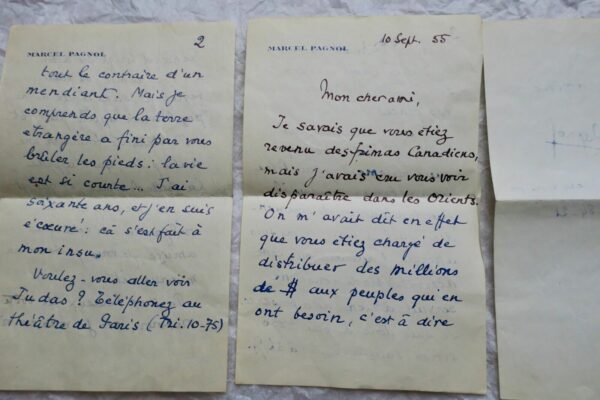 MARCEL PAGNOL
10 Sept. 55
Mon cher ami,
Je savais que vous étiez
revenu des frimas Canadiens,
mais j'avais cru vous voir
disparaître dans les Orients.
On m'avait dit en effet
que vous étiez chargé de
distribuer des millions
de $ aux peuples qui en
ont besoin, c'est à dire
MARCEL PAGNOL
2
tout le contraire d'un
mendiant. Mais je
comprends que la terre
étrangère a fini par vous
brûler les pieds : la vie
est si courte... J'ai
soixante ans, et j'en suis
écœuré : ça s'est fait à
mon insu.
Voulez-vous aller voir
Judas ? Téléphonez au
théâtre de Paris (Tri. 10-75)